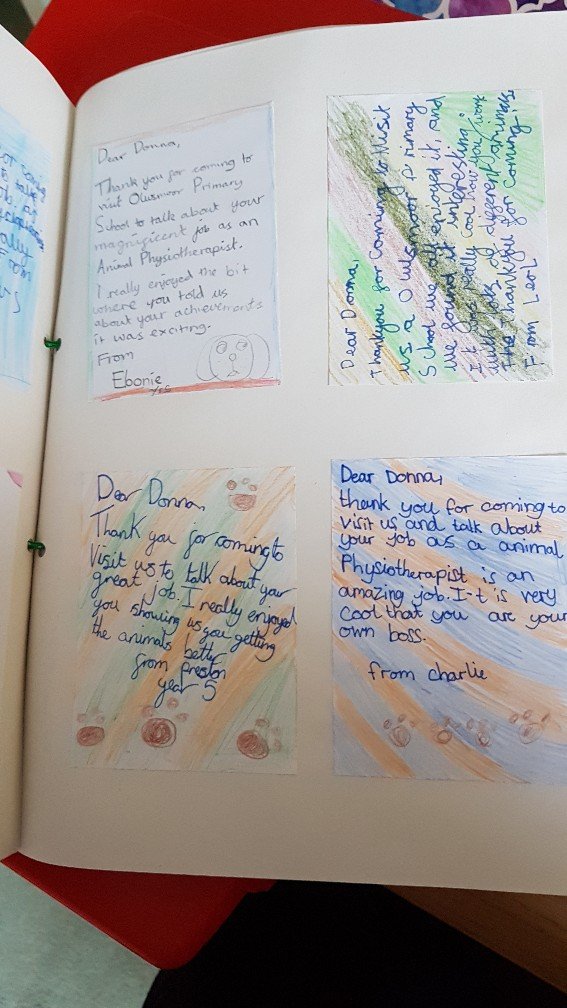 Dear Donna,
Thank you for coming to
visit Owlsmoor Primary
School to talk about your
magnificent job as an
Animal Physiotherapist.
I really enjoyed the bit
where you told us
about your achievements
it was exciting.
From
Ebonie
Dear Donna,
Thankyou for coming to visit
us a Owlsmoor Primary
School we all enjoyed it, and
we found it interesting.
It was really cool how you work
with lots of different animals
Thankyou for coming
From
Dear Donna,
Thank you for coming to
Visit us to talk about your
great job. I really enjoyed
you showing us you getting
the animals better
from Preston
year 5
Dear Donna,
thank you for coming to
visit us and talk about
your job as a animal
Physiotherapist is an
amazing job. I-t is very
cool that you are your
own boss.
from charlie